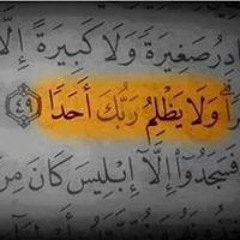 دِرُ صَغِيرَةً وَلَا كَبِيرَةً إِلَّا
وَلَا يَظْلِمُ رَبُّكَ أَحَدًا ﴿٤٩﴾
فَسَجَدُوٓا۟ إِلَّآ إِبْلِيسَ كَانَ مِنَ